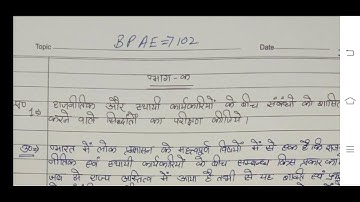 Topic BPAE=7102 Date
भाग-क
प्र० 1⇒ राजनीतिक और स्थायी कार्यकारियों के बीच संबंधों को शासित
करने वाले सिद्धांतों का परीक्षण कीजिये।
उ०⇒ भारत में लोक प्रशासन के महत्वपूर्ण विषयों में से एक है कि राज
नीतिक एवं स्थायी कार्यकारियों के बीच सम्बन्ध किस प्रकार का
जब से राज्य अस्तित्व में आया है तभी से यह